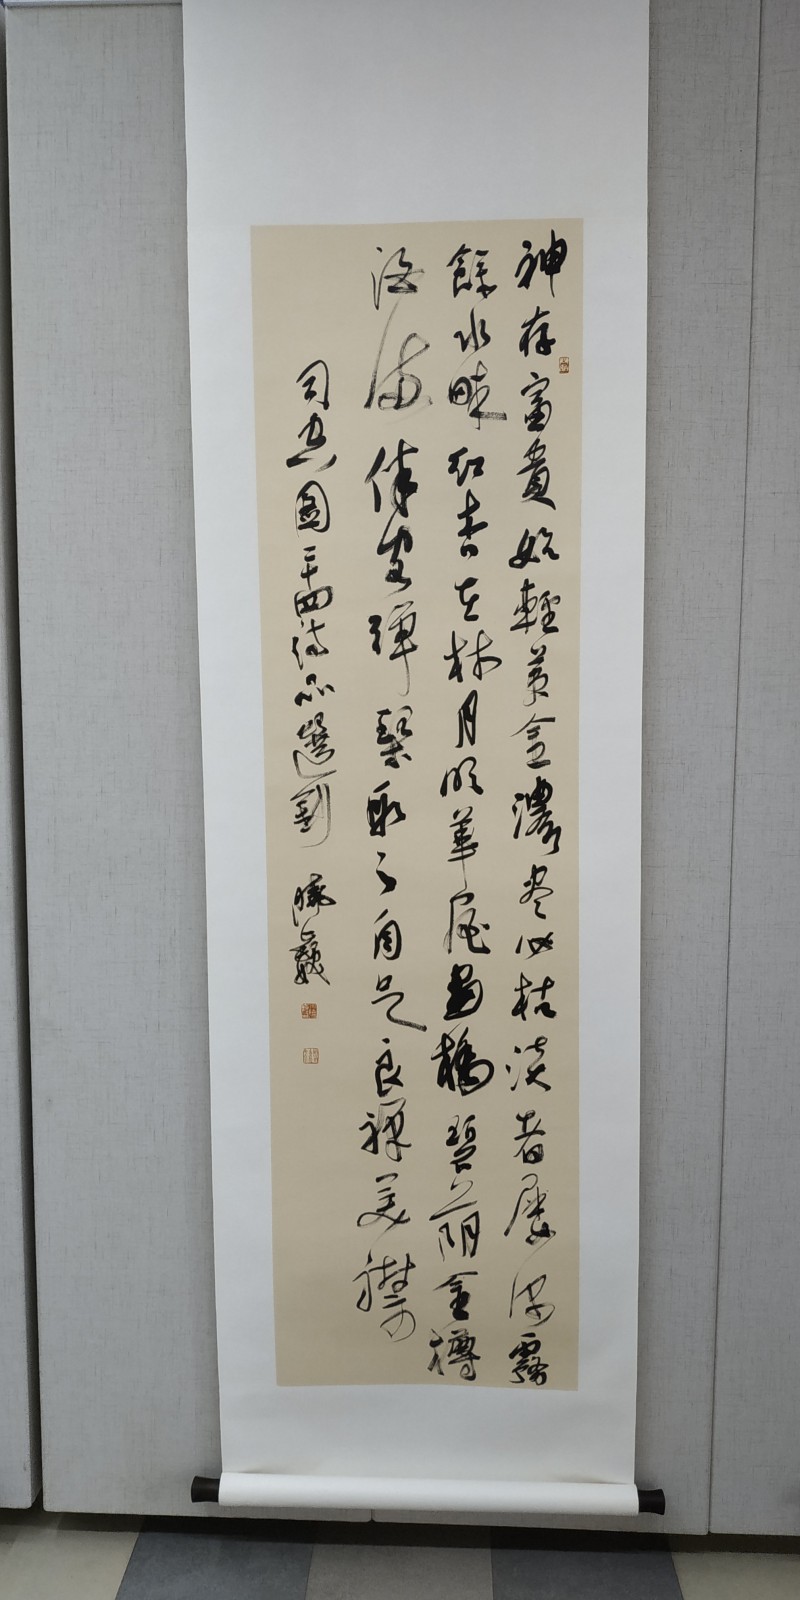 神存富貴始輕黃金濃盡必枯淡者屢深霧
餘水畔紅杏在林月明華屋畫橋碧陰金樽
酒滿伴客彈琴取之自足良殫美襟
司空圖二十四詩品選 曉巍